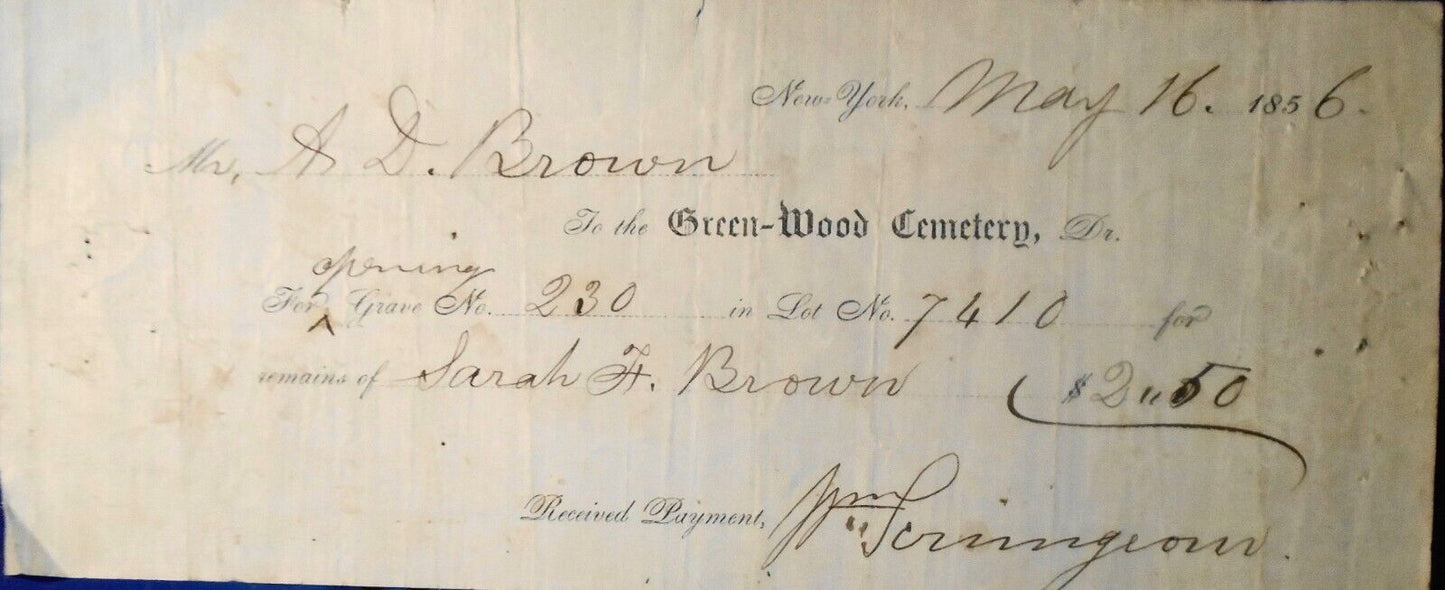 New-York, May 16. 1856.
Mr, A D. Brown
To the Green-Wood Cemetery, Dr.
opening
For ^ Grave No. 230 in Lot No. 7410 for
remains of Sarah F. Brown $2"50
Received Payment, Wm Scrimgeour.